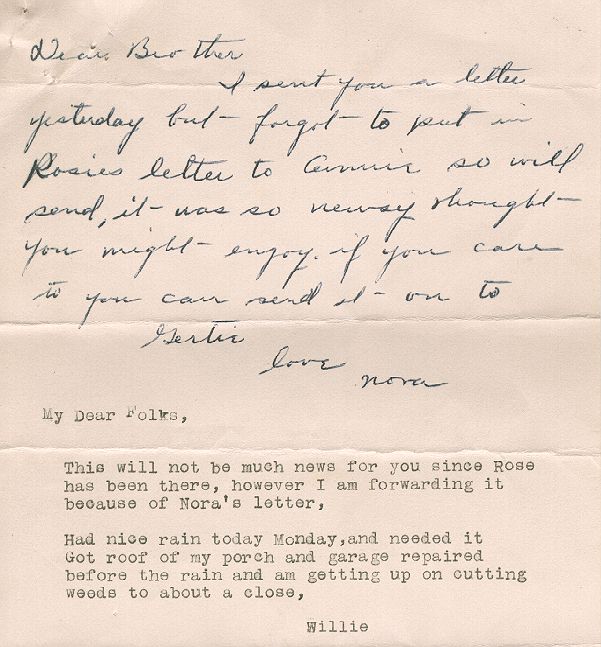 Dear Brother
I sent you a letter
yesterday but forgot to put in
Rosies letter to Annie so will
send, it was so newsy thought
you might enjoy. if you care
to you can send it on to
Gertie
love
nora
My Dear Folks,
This will not be much news for you since Rose
has been there, however I am forwarding it
because of Nora's letter,
Had nice rain today Monday,and needed it
Got roof of my porch and garage repaired
before the rain and am getting up on cutting
weeds to about a close,
Willie